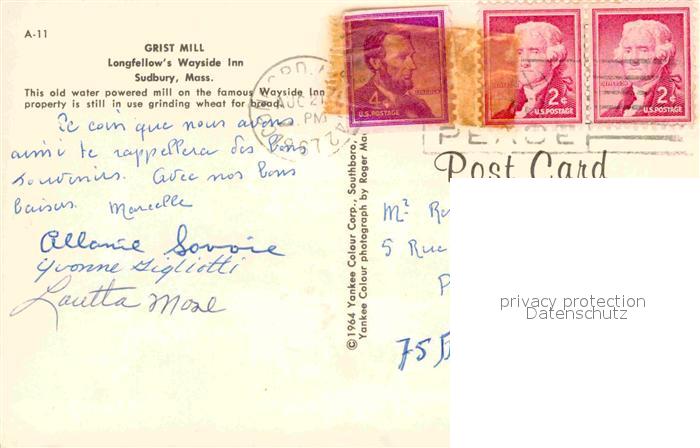 A-11
GRIST MILL
Longfellow's Wayside Inn
Sudbury, Mass.
This old water powered mill on the famous Wayside Inn
property is still in use grinding wheat for bread.
Ce coin que nous avons
aimé te rappellera des bons
souvenirs. Avec nos bons
baisers. Marcelle
Allanie Savoie
Yvonne Gigliotti
Loretta Morse
© 1964 Yankee Colour Corp., Southboro,
Yankee Colour photograph by Roger
4¢
U.S. POSTAGE
2¢
U.S. POSTAGE
2¢
U.S. POSTAGE
PM
1967
PEACE
Post Card
5 Rue
75
privacy protection
Datenschutz